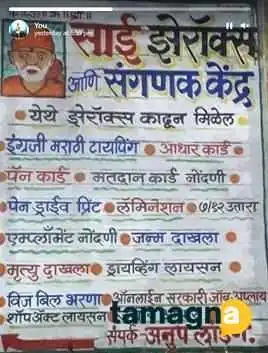 You
yesterday at
साई झेरॉक्स
आणि संगणक केंद्र
येथे झेरॉक्स काढून मिळेल
इंग्रजी मराठी टायपिंग आधार कार्ड
पॅन कार्ड मतदान कार्ड नोंदणी
पेन ड्राईव प्रिंट लॅमिनेशन ७/१२ उतारा
एम्प्लॉमेंट नोंदणी जन्म दाखला
मृत्यु दाखला ड्रायव्हिंग लायसन
विज बिल भरणा ऑनलाईन सरकारी जॉब अप्लाय
शॉपॲक्ट लायसन tamagna
संपर्क अनुप